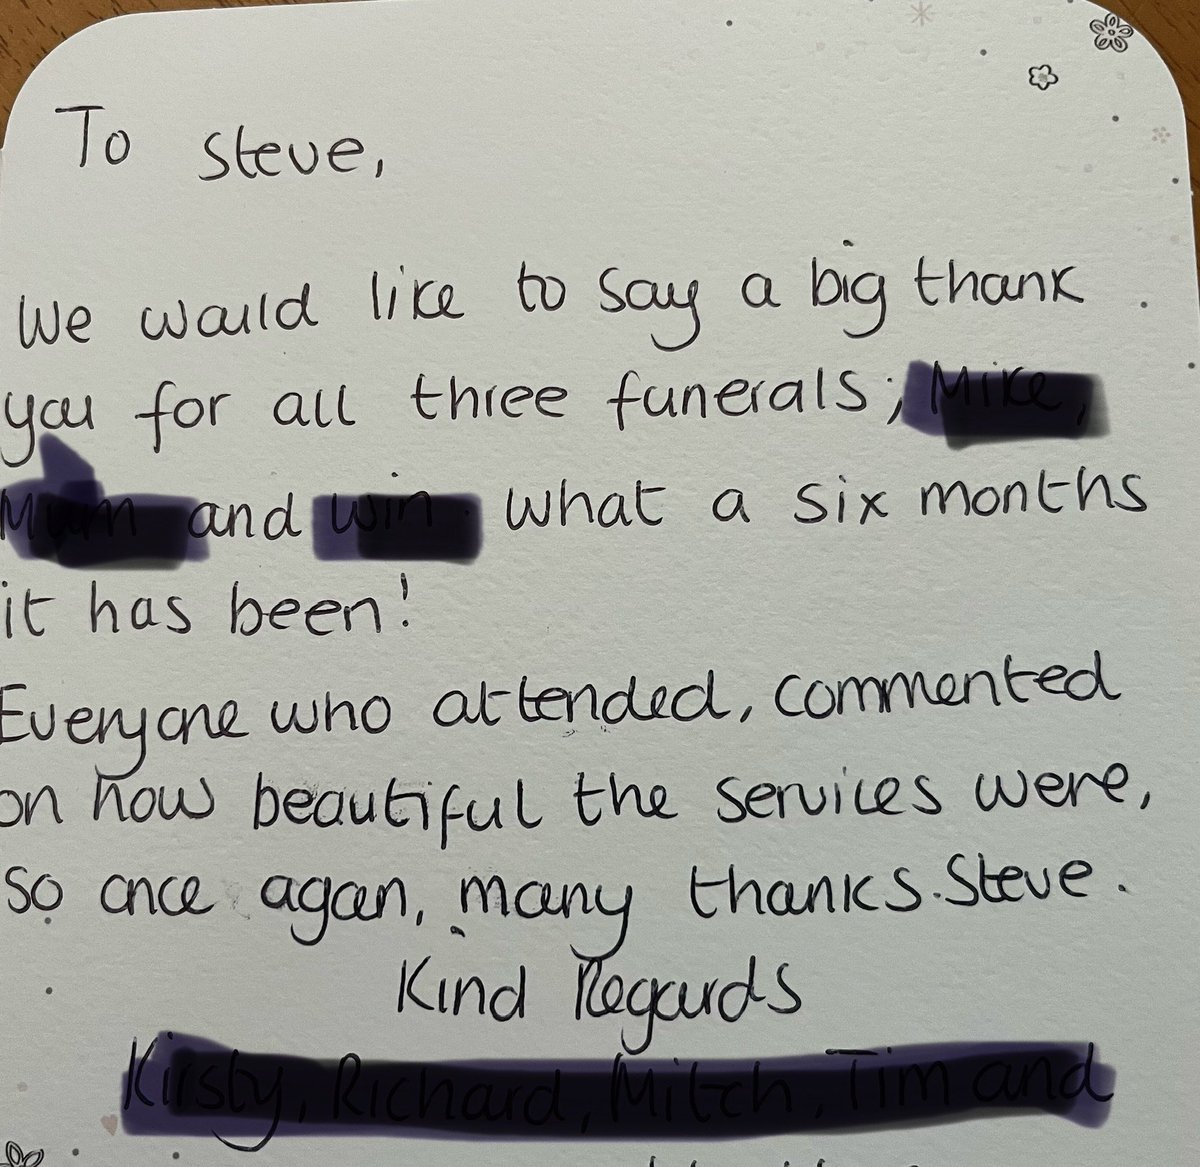 To Steve,
We would like to say a big thank
you for all three funerals; Mike,
Mum and Win. What a six months
it has been!
Everyone who attended, commented
on how beautiful the services were,
so once again, many thanks. Steve.
Kind Regards
Kirsty, Richard, Mitch, Tim and